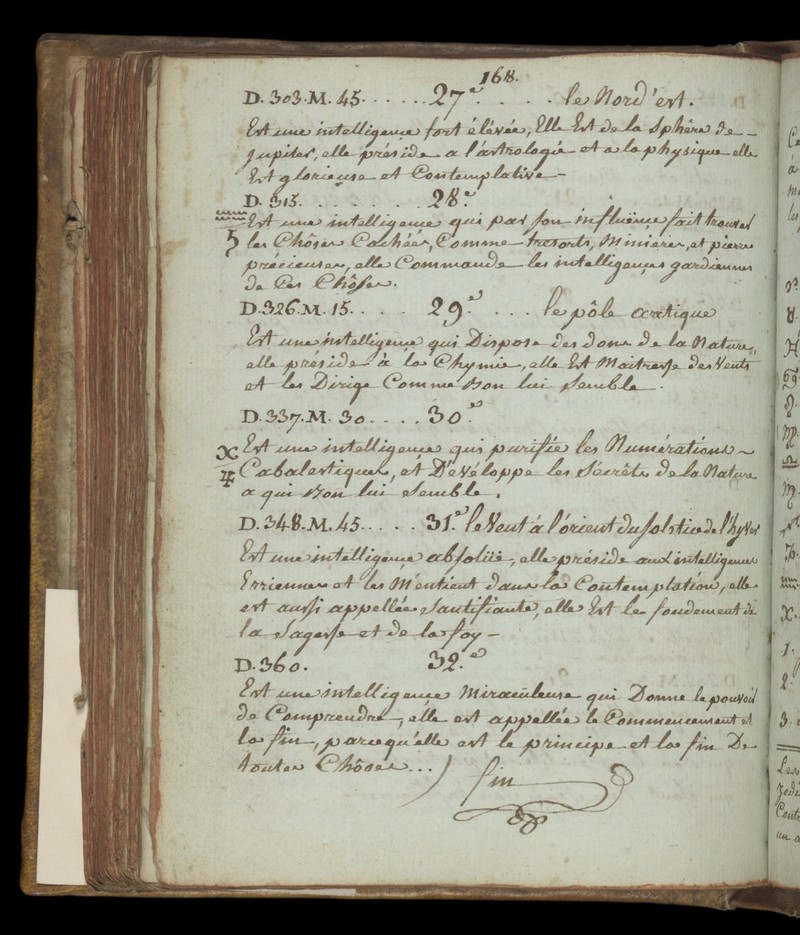 168.
D. 303. M. 45. . . . . . 27.e . . . . le Nord'est.
Est une intelligence fort élévée, Elle Est de la Sphère de
Jupiter, elle préside a l'astrologie et a la physique elle
Est glorieuse et Contemplative
D. 315. . . . . . . 28.e
Est une intelligence qui par son influënce fait trouver
les Chôses Cachées, Comme trésorts, Minières, et pierres
précieuses, elle Commande les intelligences gardiennes
de Ces Chôses.
D. 326. M. 15. . . . 29.e . . . le pôle artique
Est une intelligence qui Dispose des dons de la Nature,
elle préside à la Chymie, elle Est Maitresse des Vents
et les Dirige Comme bon lui semble.
D. 337. M. 30. . . . 30.e
Est une intelligence qui purifie les Numérations
Cabalestiques, et Dévéloppe les sécrêts de la Nature
a qui bon lui semble.
D. 348. M. 45. . . . . 31.e le Vent à l'orient du solstice de l'hyver
Est une intelligence absoluë, elle préside aux intelligences
Erriennes et les M'entient dans la Contemplation, elle
est aussi appellée santifiante, elle Est le fondement de
la sagesse et de la foy
D. 360. 32.e
Est une intelligence Miraculeuse qui Donne le pouvoir
de Comprendre, elle est appellée le Commencement et
la fin, parcequ'elle est le principe et la fin De
toutes Chôses...)
fin